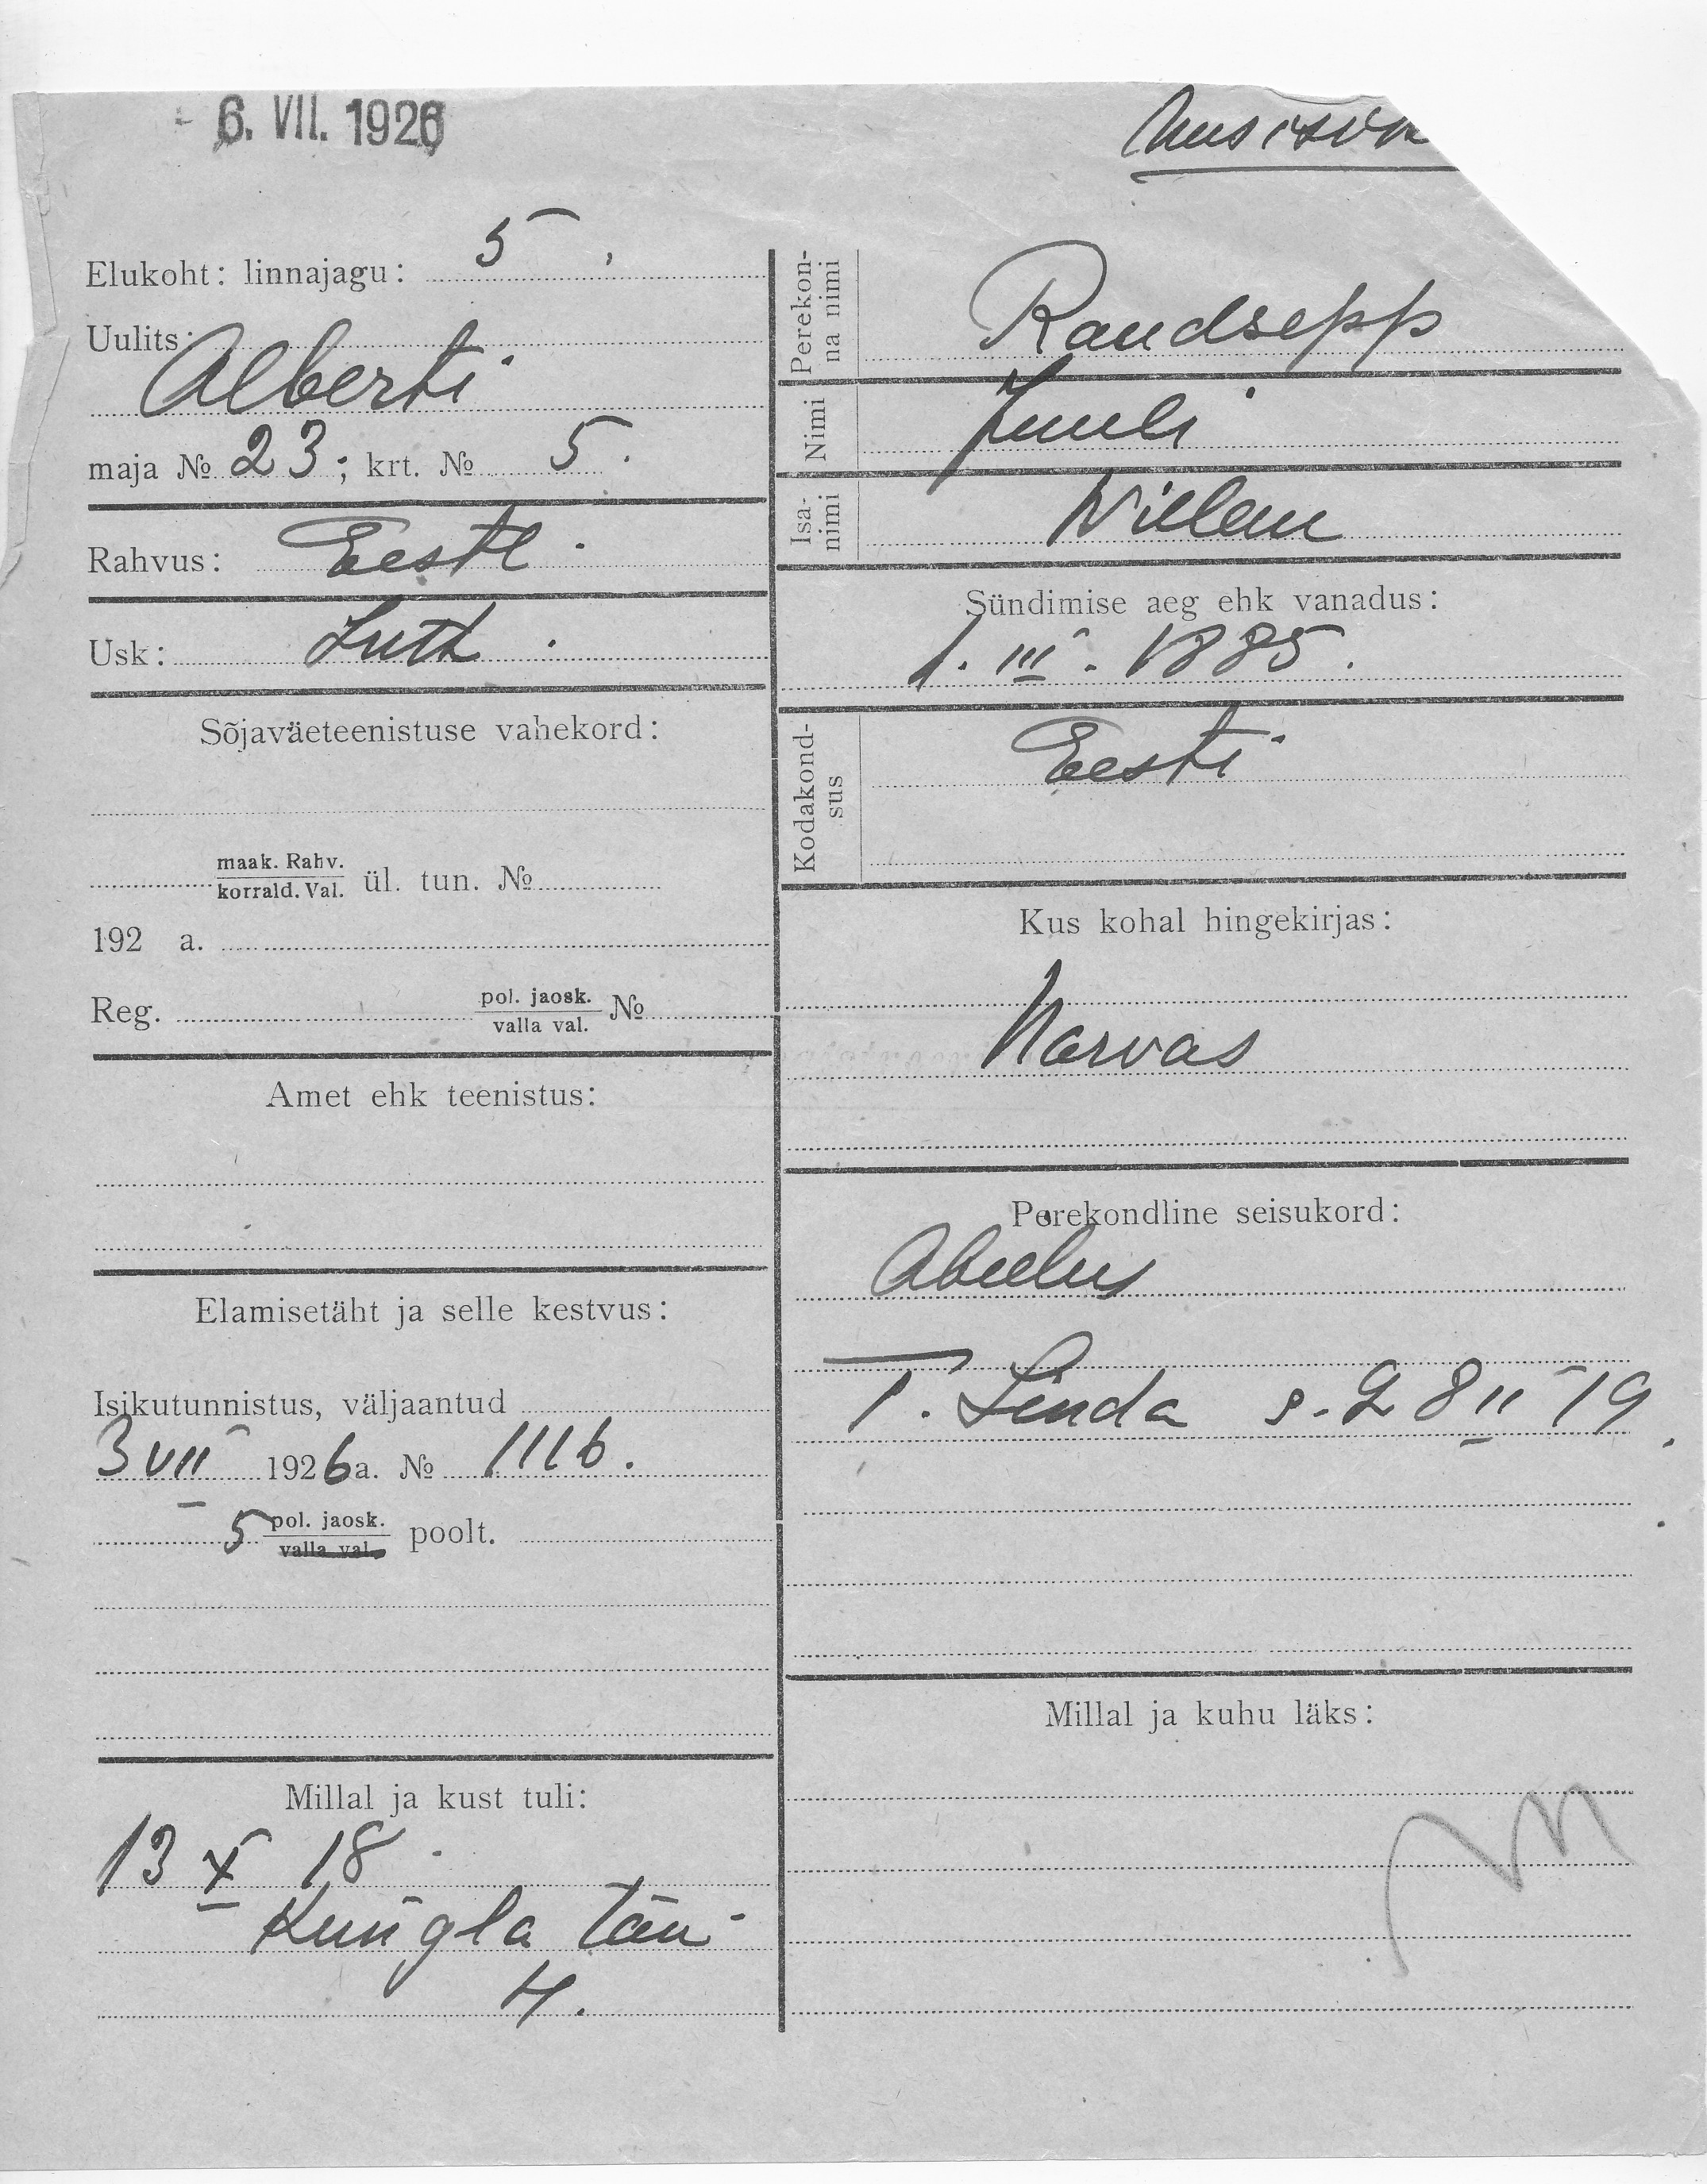 - 6. VII. 1926
Elukoht: linnajagu: 5
Uulits:
Alberti
maja № 23; krt. № 5.
Rahvus: Eesti.
Usk: Luth.
Sõjaväeteenistuse vahekord:
maak. Rahv.
korrald. Val. ül. tun. №
192 a.
Reg. pol. jaosk.
valla val. №
Amet ehk teenistus:
Elamisetäht ja selle kestvus:
Isikutunnistus, väljaantud
3 VII 1926 a. № 1116.
5 pol. jaosk.
valla val. poolt.
Millal ja kust tuli:
13 X 18.
Kungla tän
4.
Perekon-
na nimi
Raudsepp
Nimi Juuli
Isa-
nimi
Willem
Sündimise aeg ehk vanadus:
1. III. 1885.
Kodakond-
sus
Eesti
Kus kohal hingekirjas:
Narvas
Perekondline seisukord:
Abielus
T. Linda s. 28 II 19.
Millal ja kuhu läks: